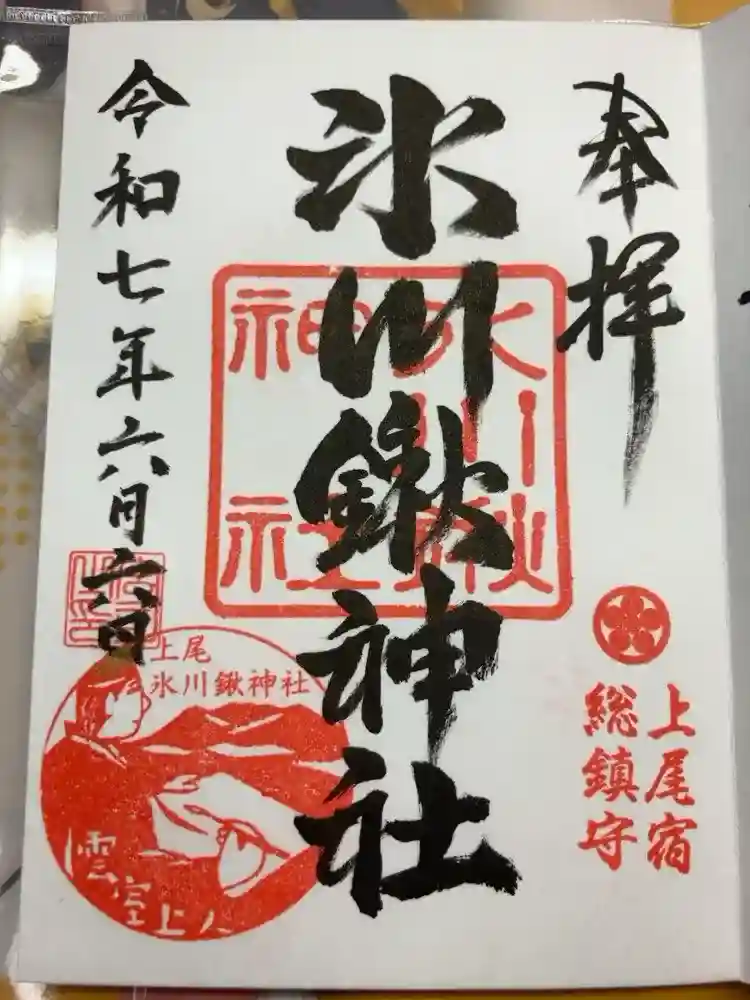 奉拝
上尾宿
総鎮守
氷川鍬神社
氷川鍬
神社
令和七年六月六日
上尾
氷川鍬神社
雲室上人